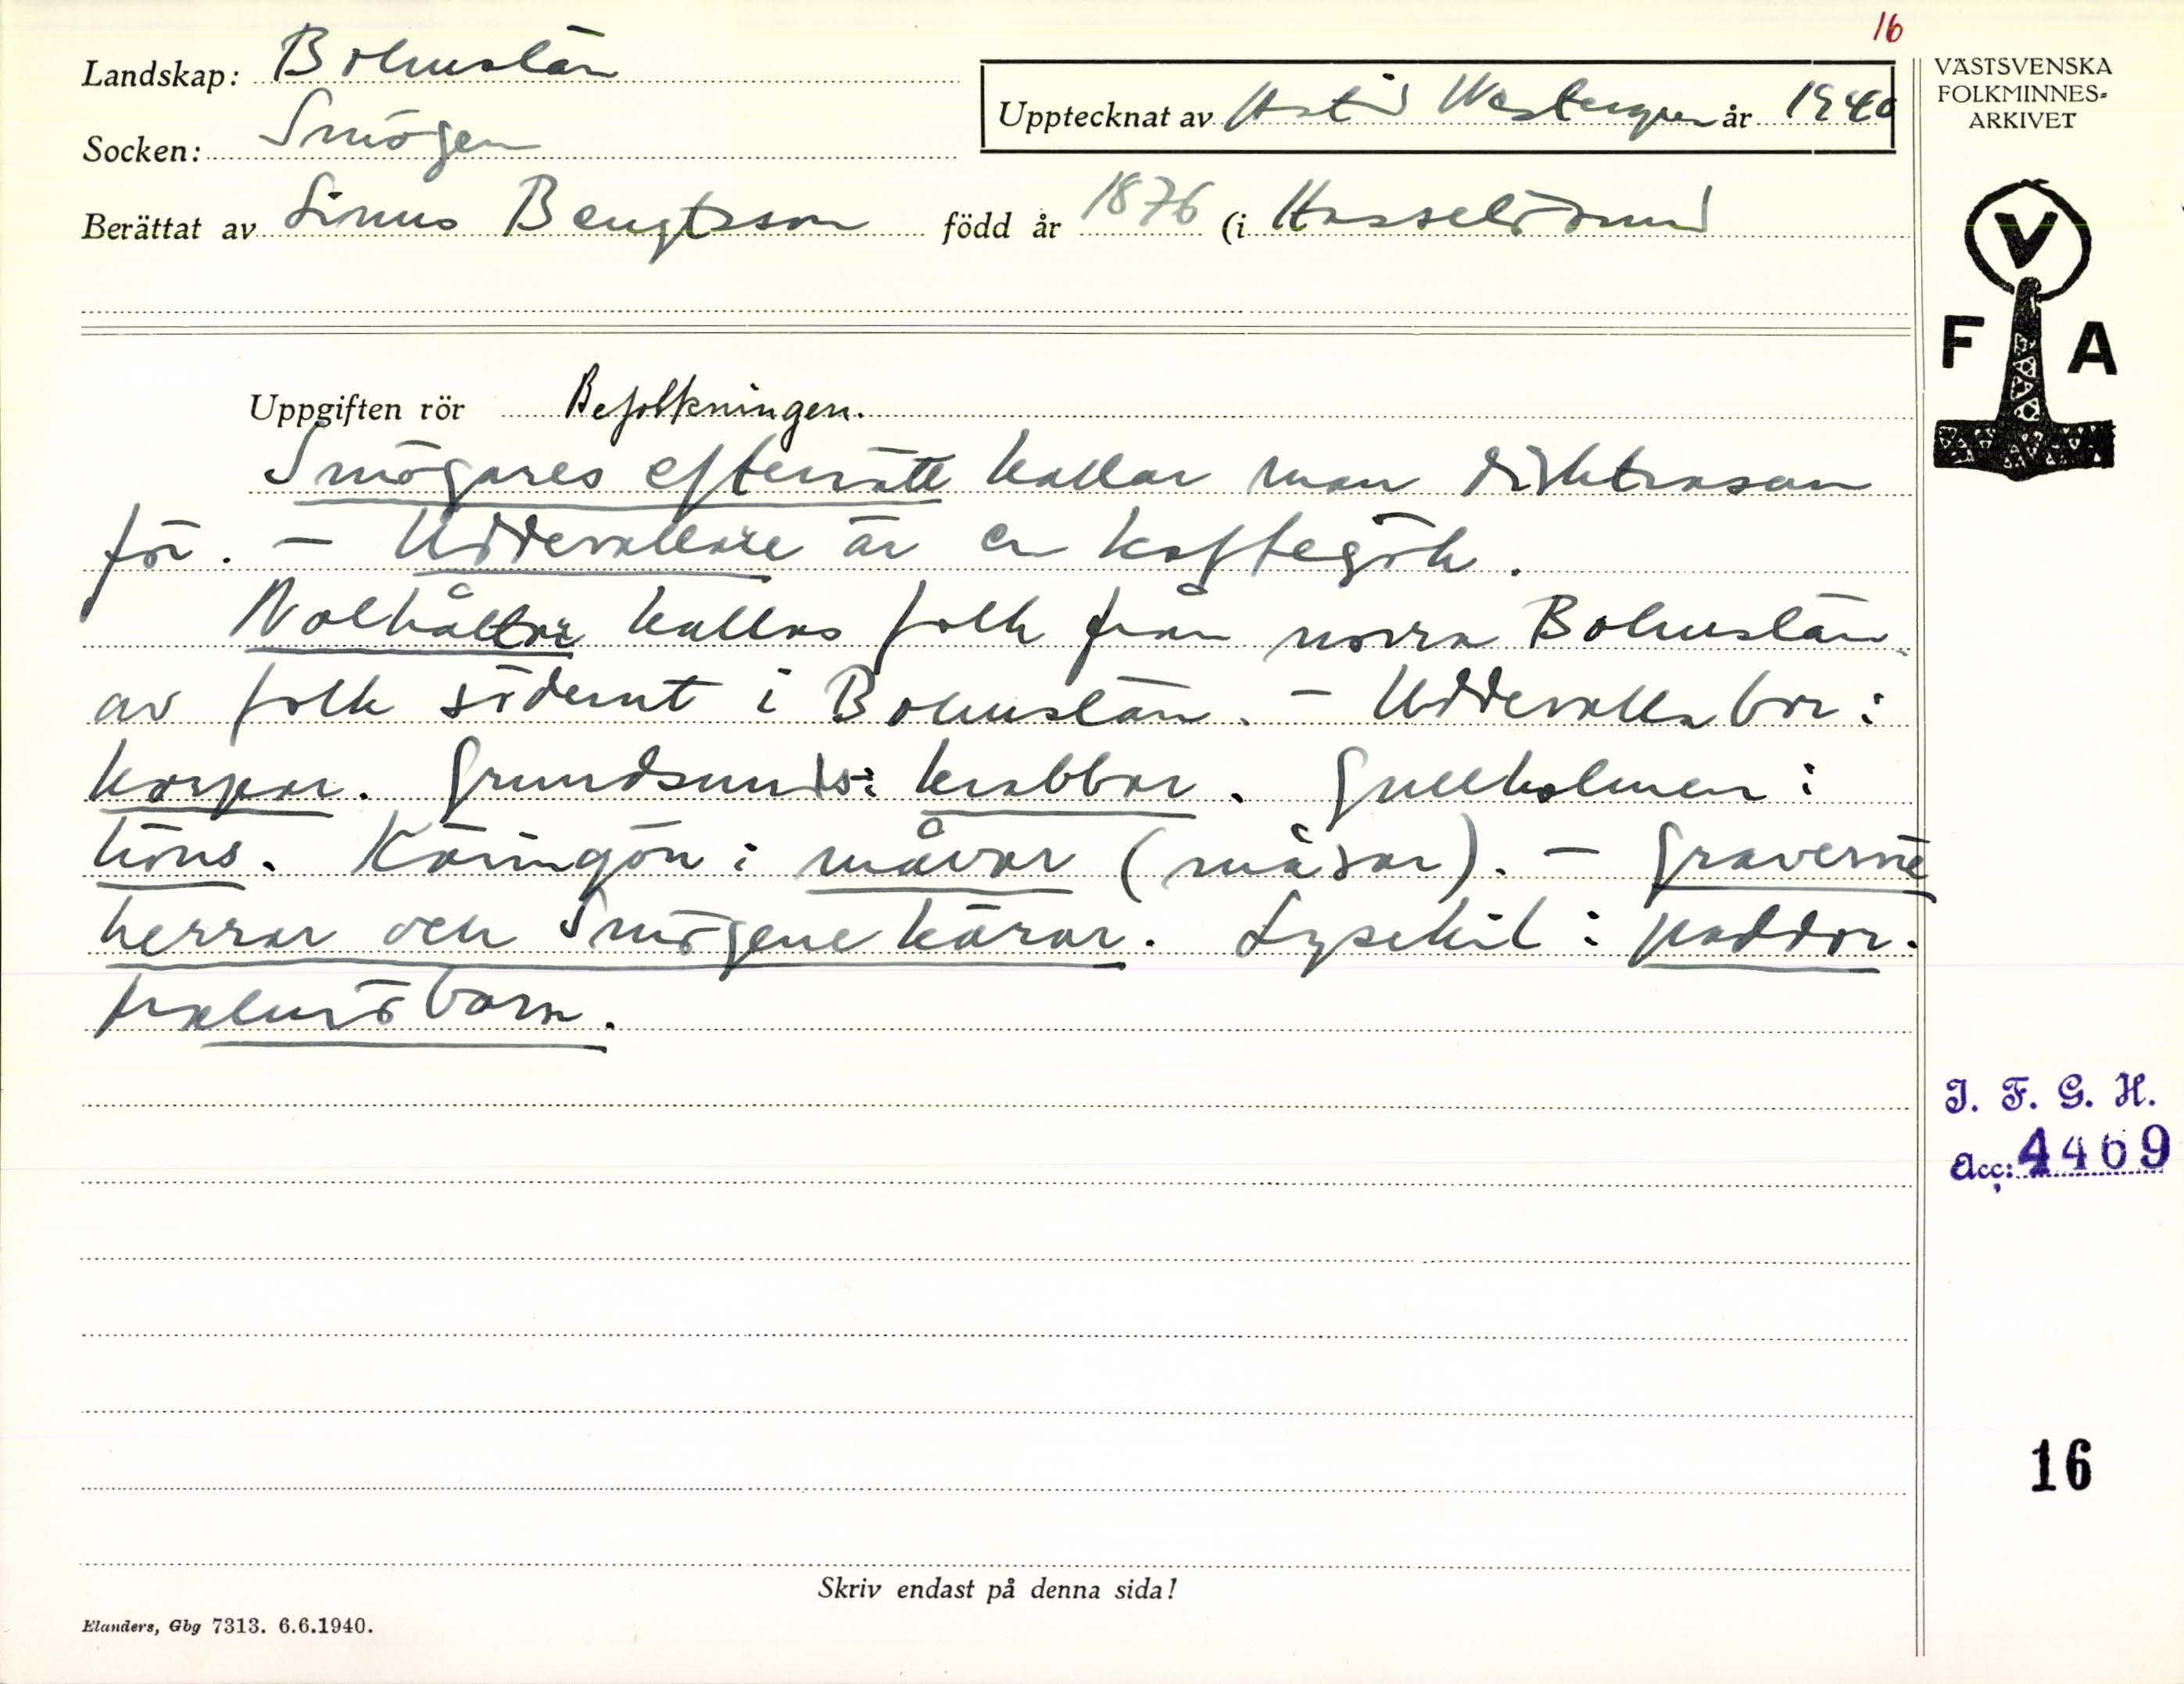 16
Landskap: Bohuslän
Socken: Smögen
Upptecknat av Astrid Westergren år 1940
Berättat av Linus Bengtsson född år 1876 (i Hasselösund
VÄSTSVENSKA
FOLKMINNES=
ARKIVET
V
F A
Uppgiften rör Befolkningen.
Smögares efterrätt kallar man disktrasan
för. - Uddevallare är en kaffegök.
Nolhåttar kallas folk från norra Bohuslän
av folk söderut i Bohuslän. - Uddevallabor:
korpar. Grundsunds: krabbar. Gullholmen:
höns. Käringön: måvar (måsar). - Graverne
herrar och Smögene kärar. Lysekil: paddor.
Malmöbarn.
J. F. G. H.
Acc: 4469
16
Skriv endast på denna sida!
Elanders, Gbg 7313. 6.6.1940.